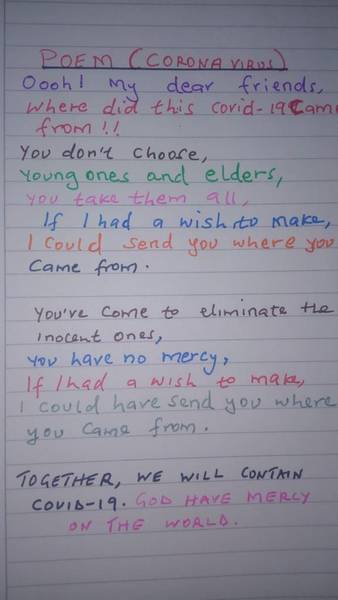 POEM (CORONAVIRUS)
Oooh! My dear friends,
Where did this covid-19 Came
from!!
You don't Choose,
Young ones and elders,
You take them all,
If I had a wish to make,
I Could send you where you
Came from.
You've Come to eliminate the
inocent ones,
You have no mercy,
If I had a wish to make,
I Could have send you where
you Came from.
TOGETHER, WE WILL CONTAIN
COVID-19. GOD HAVE MERCY
ON THE WORLD.